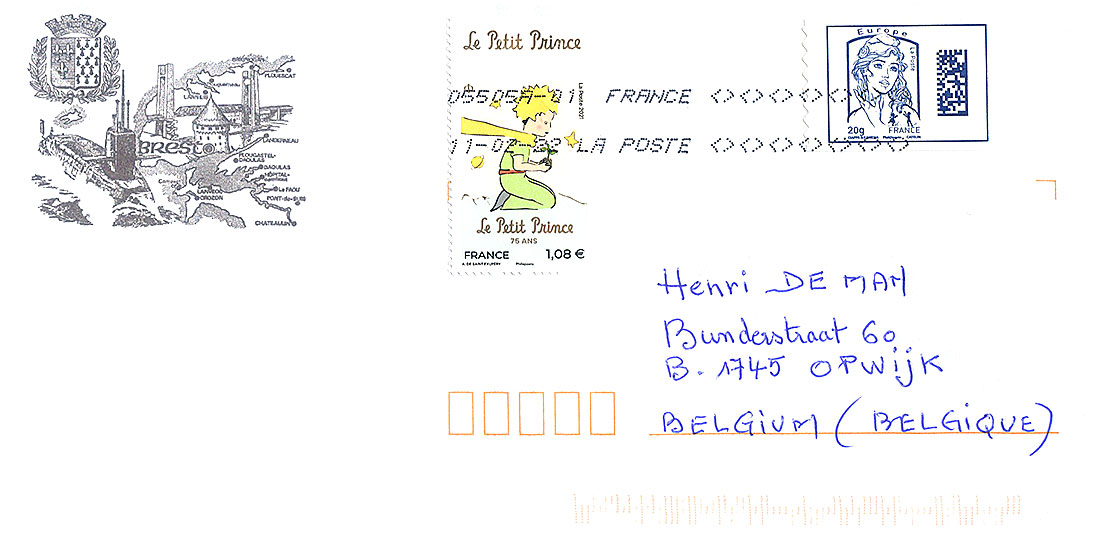 PLOUESCAT
LANNILIS
LANDERNEAU
BREST
PLOUGASTEL-
DAOULAS
DAOULAS
HÔPITAL-
LE FAOU
LANVEOC
CROZON
PONT-de-BUIS
CHATEAULIN
Le Petit Prince
La Poste 2021
05505A-01 FRANCE
LA POSTE
Le Petit Prince
75 ANS
FRANCE 1,08 €
A. DE SAINT-EXUPÉRY Philaposte
Europe
La Poste
20g FRANCE
CIAPPA & KAWENA Philaposte
Henri DE MAN
Bunderstraat 60
B. 1745 OPWijK
BELGiUM (BELGiQUE)